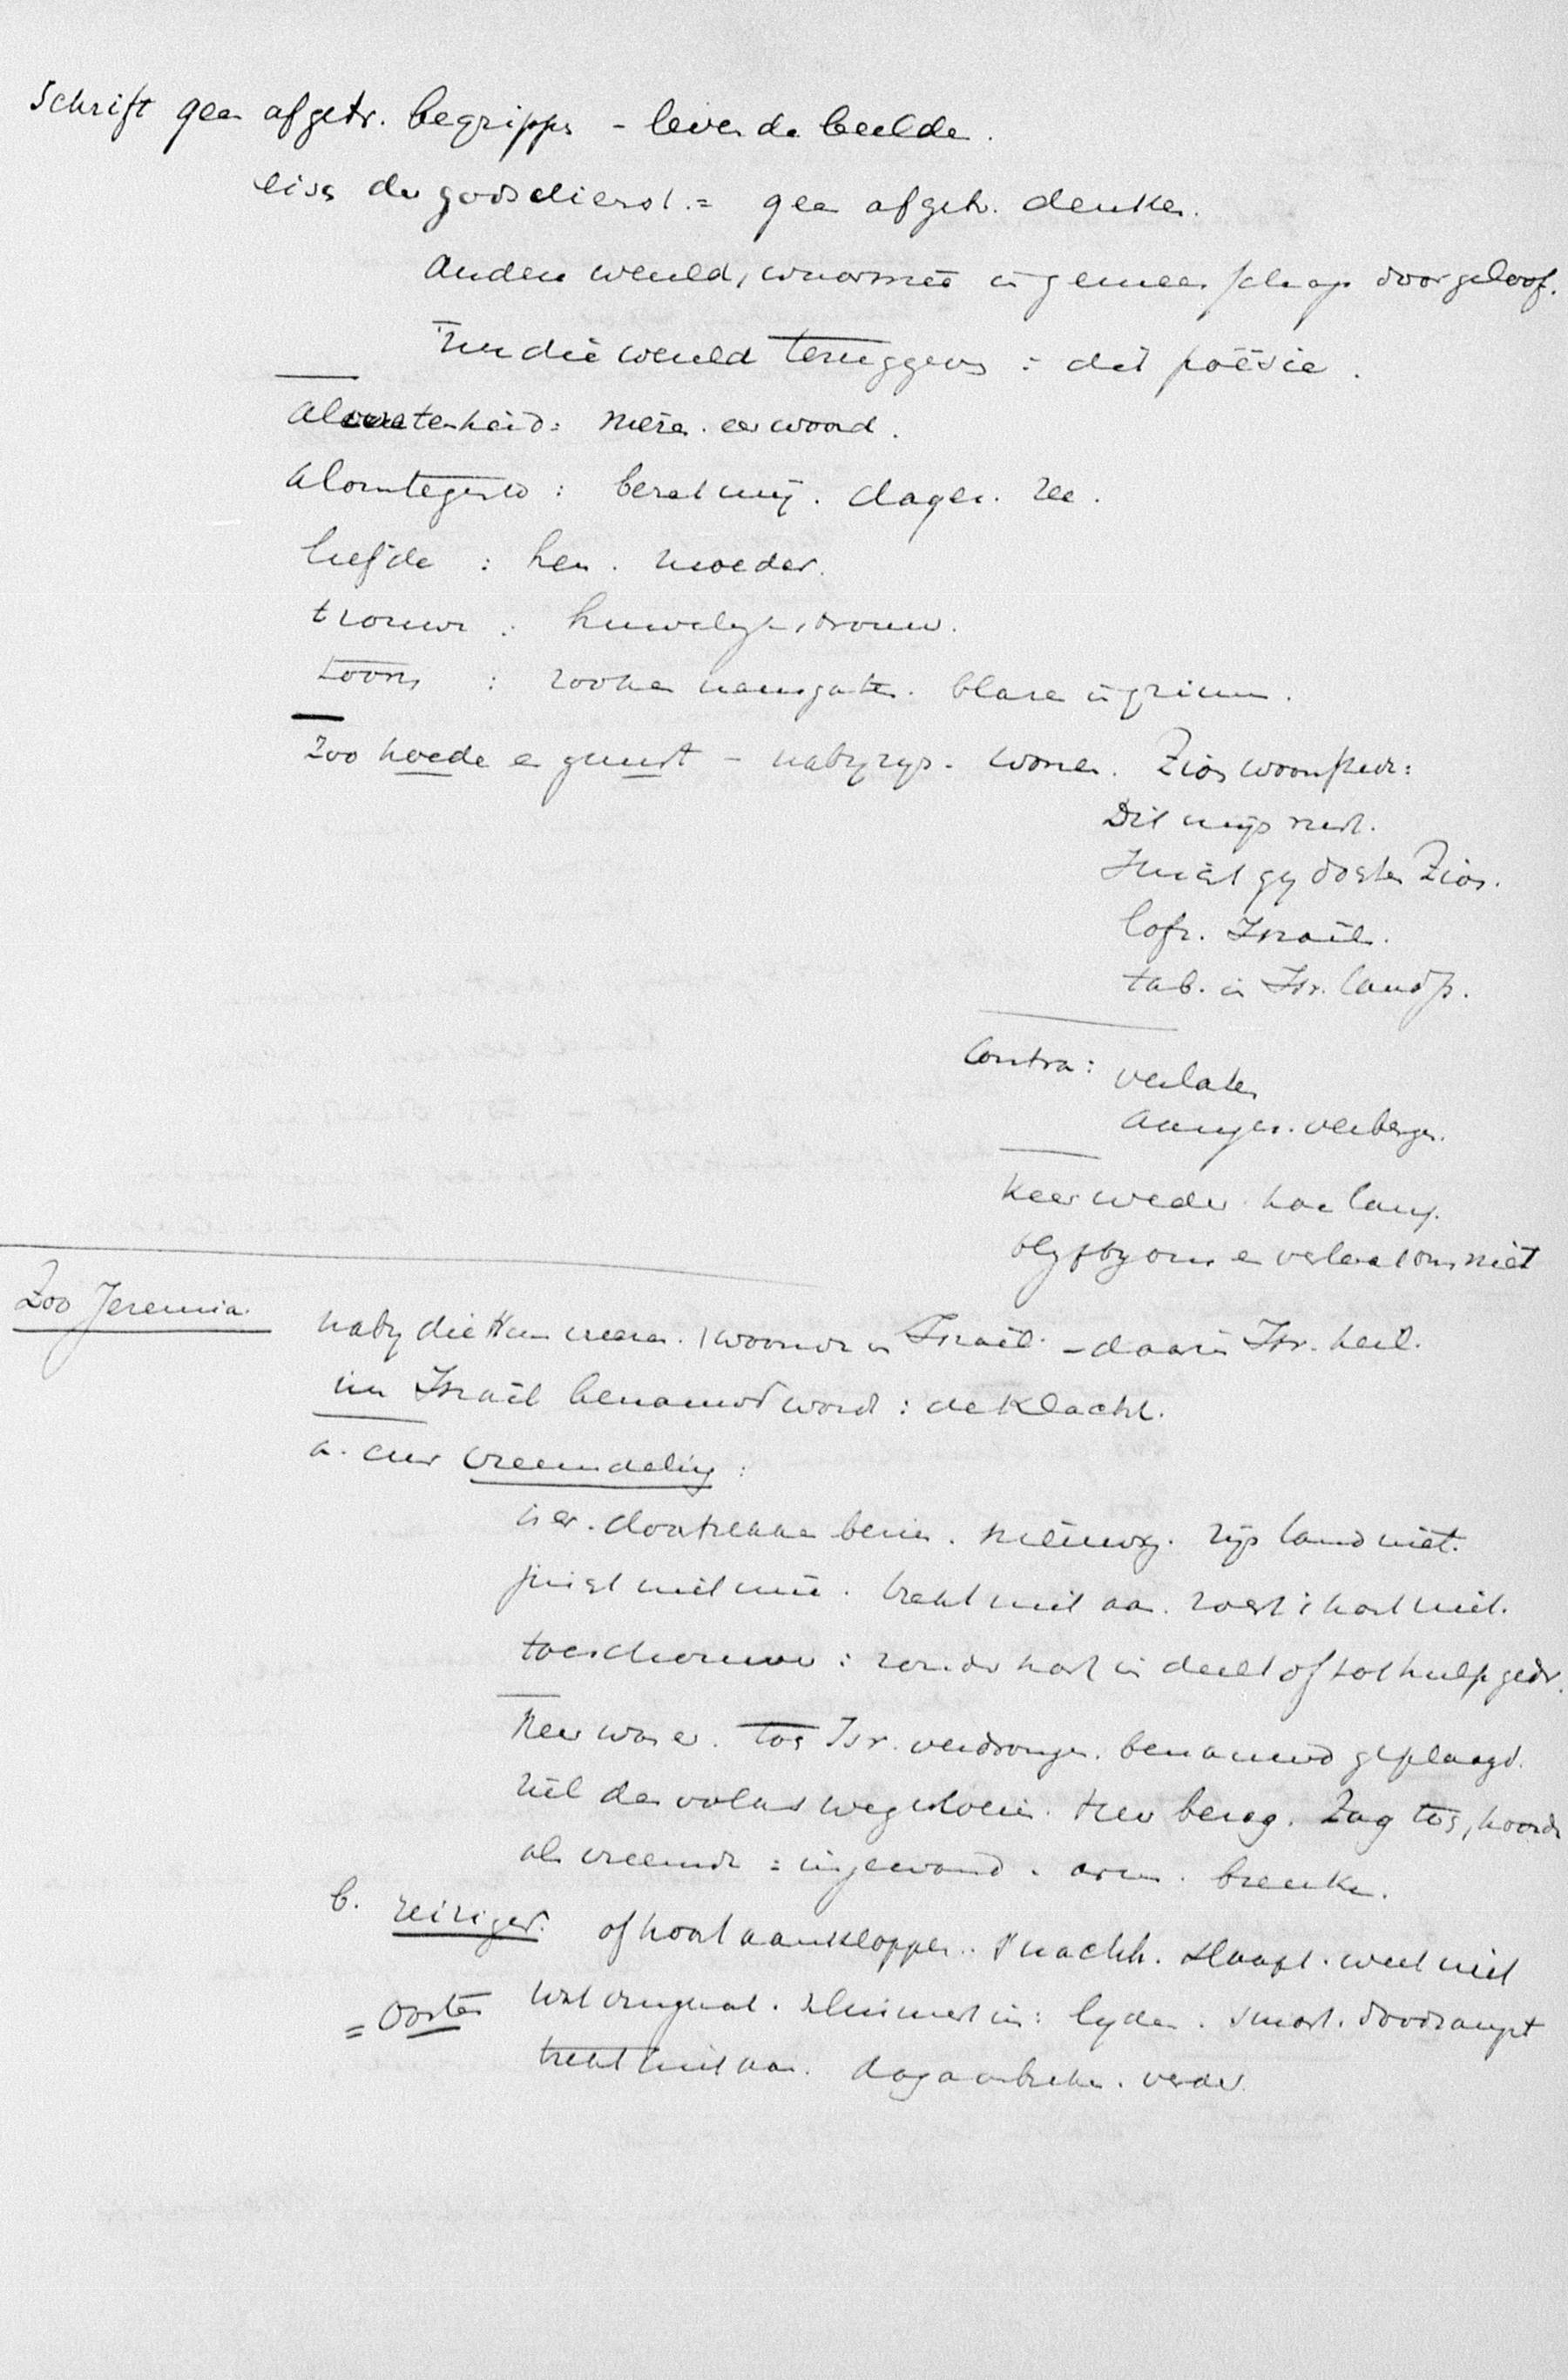 Schrift geen afgetr. begrippen - levende beelden.
eisch der godsdienst. = geen afgetr. denken.
Andere wereld, waarmeê in gemeenschap door geloof.
Nu die wereld teruggeven : dat poëzie.
Alwetenheid: nieren. een woord.
Alomtegenw : bezet mij. dager. zee.
liefde : hen. moeder.
trouw : huwelijkstrouw.
toorn : rook en neusgaten. blaze in grim.
Zoo hoede en gunst - nabyzyn. wonen. Zion woonstede:
Dit mijn rust.
Juich gij dochter Zion.
lofz. Israëls.
tab. in Isr. landp.
Contra: verlaten
aangez. verbergen.
Keer weder. hoe lang.
blyf by ons en verlaat ons niet
Zoo Jeremia.
naby die Hem vreezen. woonde in Israël. - daarin Isr. heil.
nu Israël benauwd word : de Klacht.
a. een vreemdeling :
is er. doortrekken bezien. nieuwsg. zijn land niet.
juicht niet meê. trekt niet aan. roert 't hart niet.
toeschouwer : zonder hart in deelt of tot hulp gedr.
Heer was er. toe Isr. verdrongen. benauwd geplaagd.
ziel des volks weg. Heer bezag. Zag toe, hoorde
als vreemde = ingewand. arm. breuken.
b. reiziger: of hoort aankloppen. 's nachts. slaapt. weet niet
= Ooster wat omgaat. sluimert in: lyden. smart. doodsangst
trekt niet aan. dag aanbreken. verder.